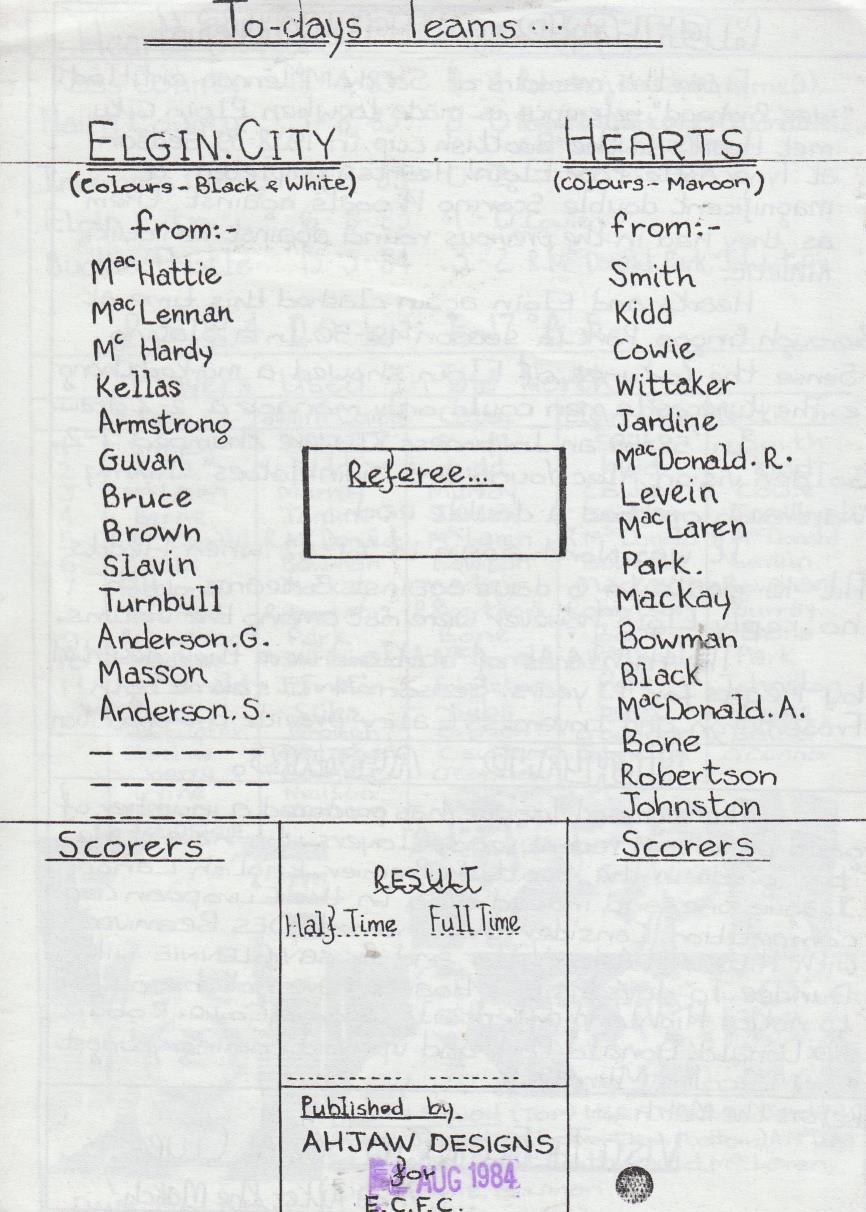 To-days Teams...
ELGIN.CITY
(Colours - Black & White)
from:-
MacHattie
MacLennan
Mc Hardy
Kellas
Armstrong
Guvan
Bruce
Brown
Slavin
Turnbull
Anderson.G.
Masson
Anderson.S.
HEARTS
(colours - Maroon)
from:-
Smith
Kidd
Cowie
Wittaker
Jardine
MacDonald.R.
Levein
MacLaren
Park.
Mackay
Bowman
Black
MacDonald.A.
Bone
Robertson
Johnston
Referee....
Scorers
RESULT
Half Time Full Time
Scorers
Published by
AHJAW DESIGNS
for
AUG 1984
E.C.F.C.